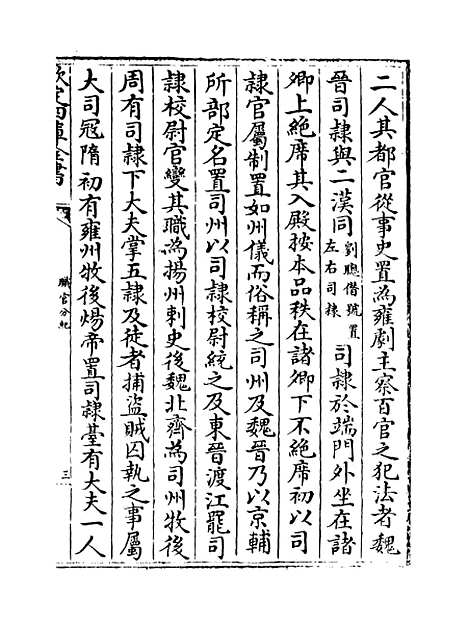 二人其都官從事史置為雍劇主察百官之犯法者魏
晉司隸與二漢同劉聰僭號置左右司隸司隸於端門外坐在諸
卿上絶席其入殿按本品秩在諸卿下不絶席初以司
隸官屬制置如州儀而俗稱之司州及魏晉乃以京輔
所部定名置司州以司隸校尉統之及東晉渡江罷司
隸校尉官變其職為揚州刺史後魏北齊為司州牧後
周有司隸下大夫掌五隸及徒者捕盜賊囚執之事屬
大司冦隋初有雍州牧後煬帝置司隸臺有大夫一人
欽定四庫全書
職官分紀
三